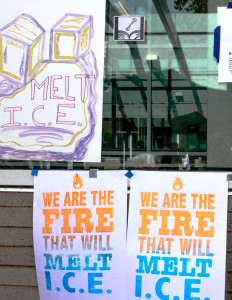 MELT
I.C.E.
WE ARE THE
FIRE
THAT WILL
MELT
I.C.E.
WE ARE THE
FIRE
THAT WILL
MELT
I.C.E.